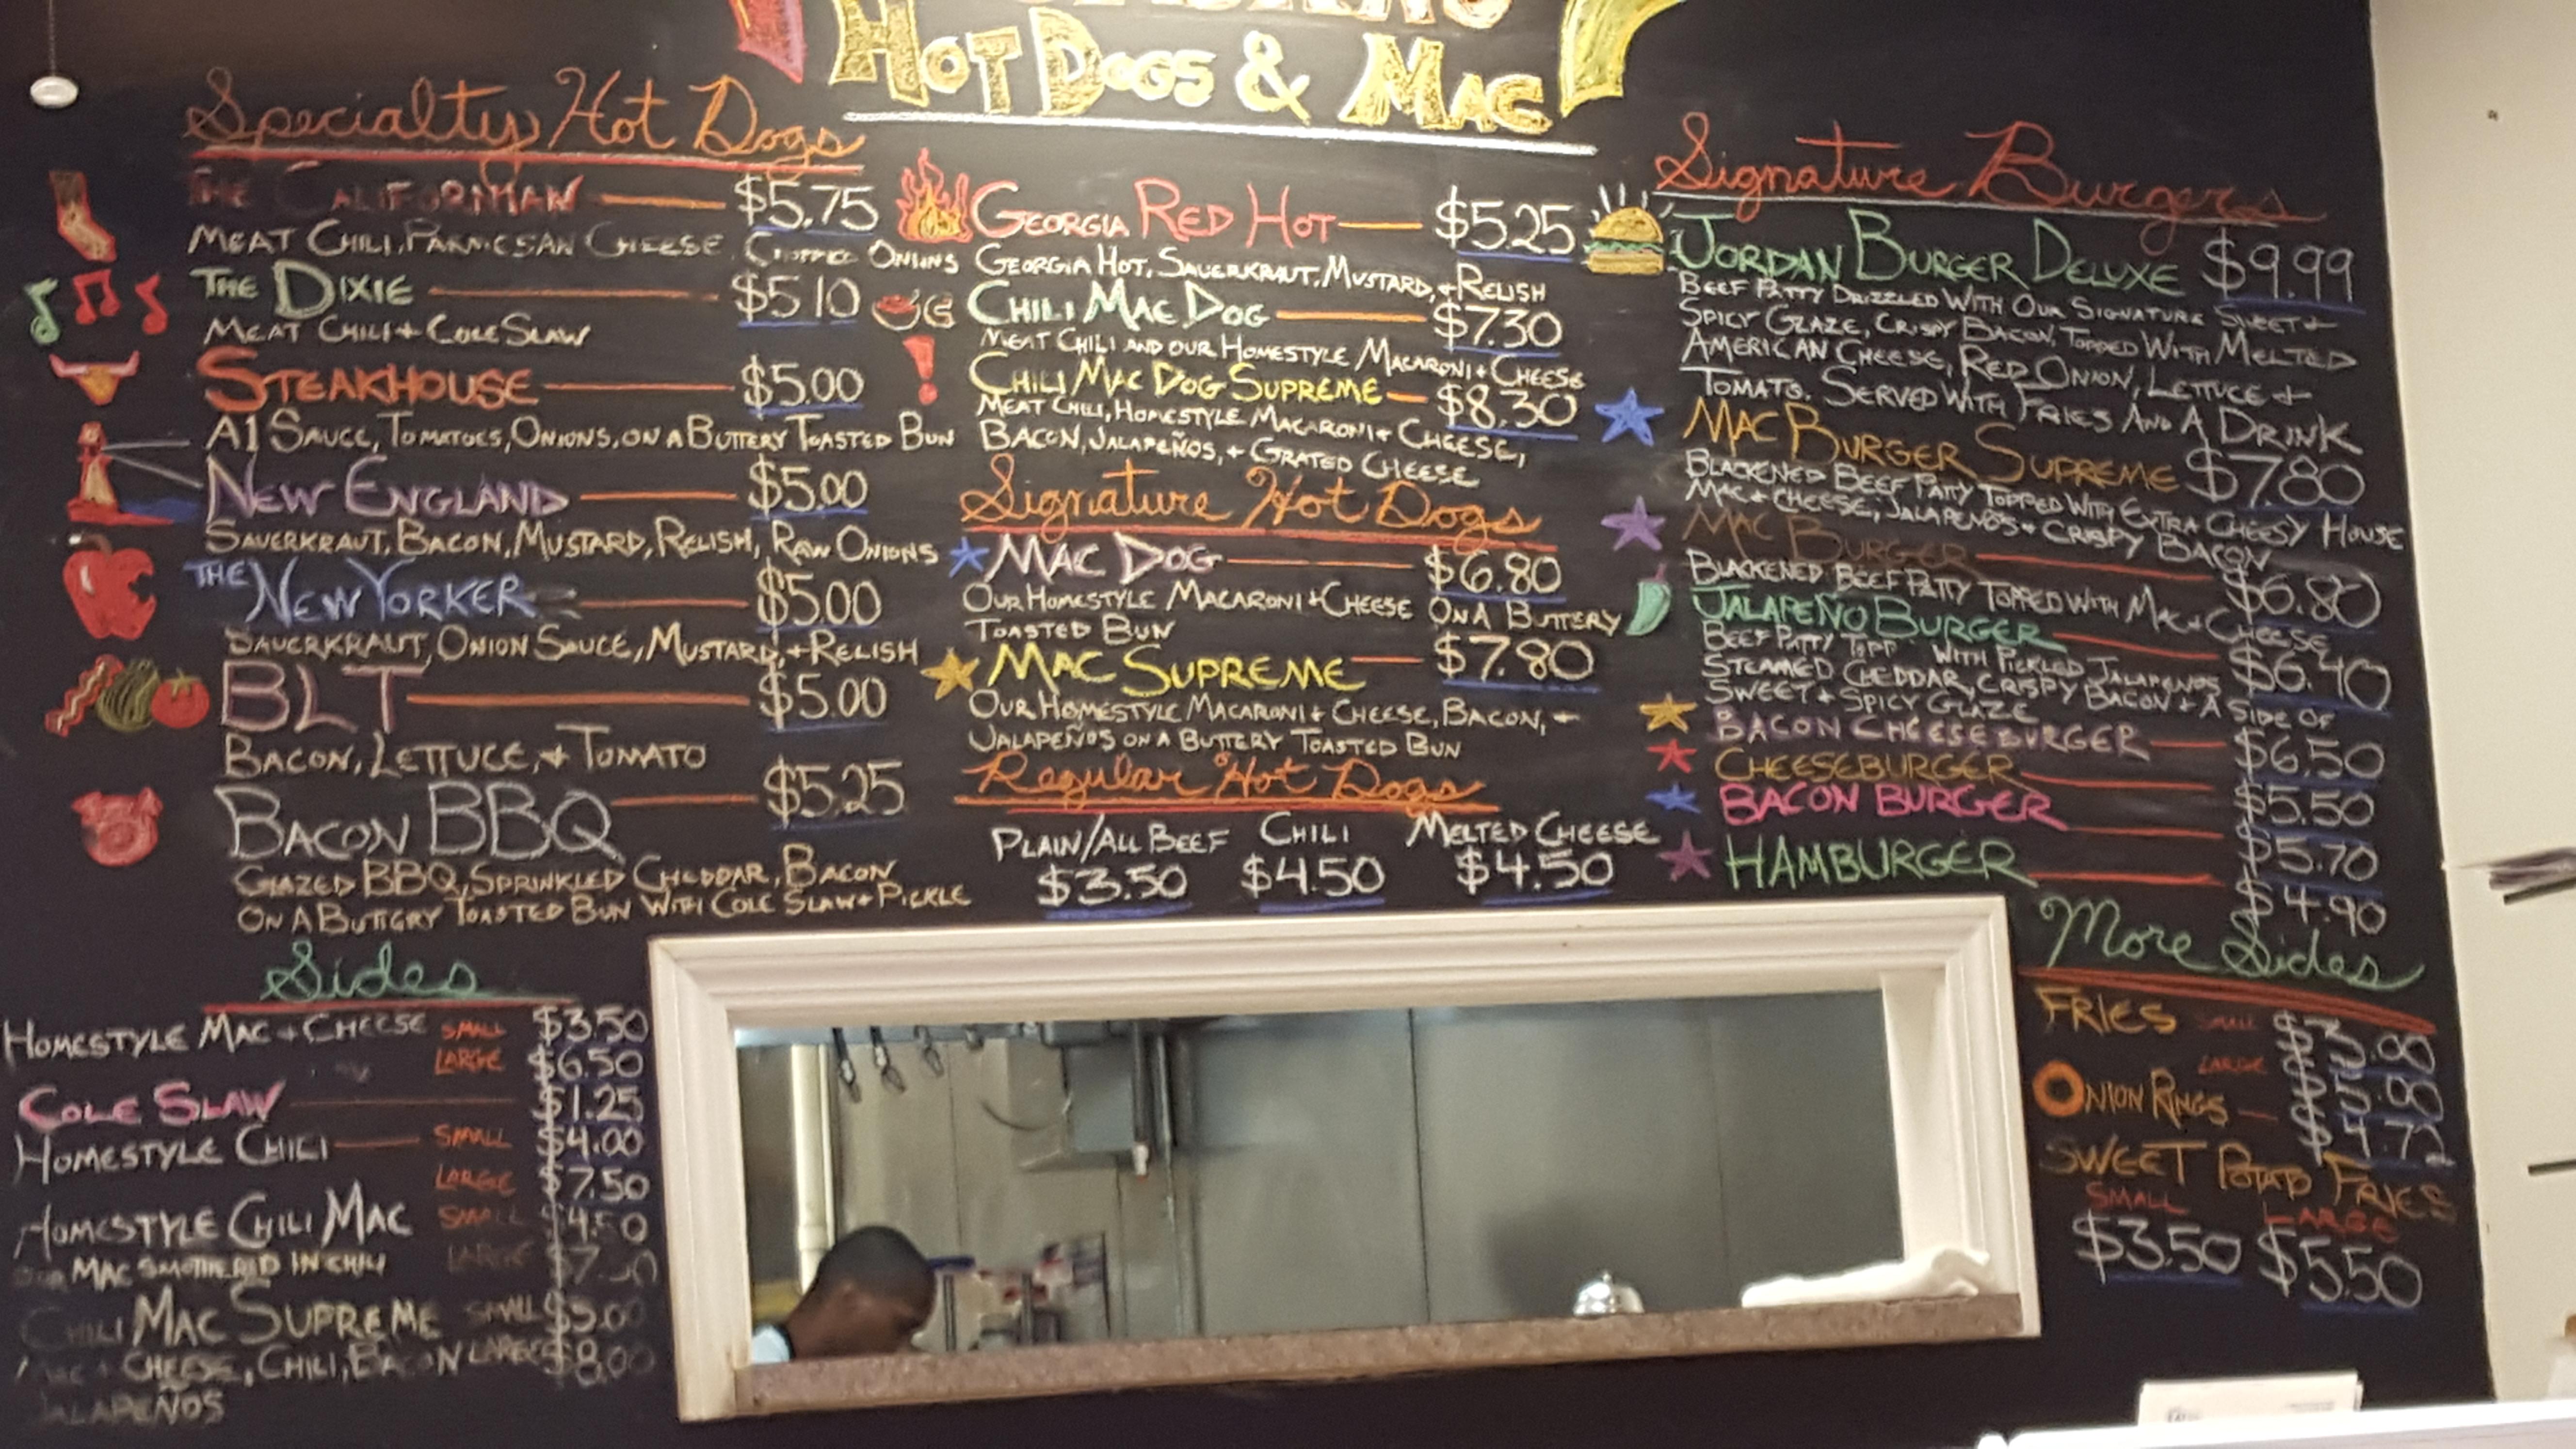 Hot Dogs & Mac
Specialty Hot Dogs
The Californian $5.75
Meat Chili, Parmesan Cheese, Chopped Onions
The Dixie $5.10
Meat Chili + Cole Slaw
Steakhouse $5.00
A1 Sauce, Tomatoes, Onions, on a Buttery Toasted Bun
New England $5.00
Sauerkraut, Bacon, Mustard, Relish, Raw Onions
The New Yorker $5.00
Sauerkraut, Onion Sauce, Mustard, + Relish
BLT $5.00
Bacon, Lettuce, + Tomato
Bacon BBQ $5.25
Glazed BBQ, Sprinkled Cheddar, Bacon
On A Buttery Toasted Bun With Cole Slaw + Pickle
Georgia Red Hot $5.25
Georgia Hot, Sauerkraut, Mustard, + Relish
Chili Mac Dog $7.30
Meat Chili and our Homestyle Macaroni + Cheese
Chili Mac Dog Supreme $8.30
Meat Chili, Homestyle Macaroni + Cheese,
Bacon, Jalapeños, + Grated Cheese
Signature Hot Dogs
Mac Dog $6.80
Our Homestyle Macaroni + Cheese On A Buttery
Toasted Bun
Mac Supreme $7.80
Our Homestyle Macaroni + Cheese, Bacon, +
Jalapeños on a Buttery Toasted Bun
Regular Hot Dogs
Plain/All Beef Chili Melted Cheese
$3.50 $4.50 $4.50
Signature Burgers
Jordan Burger Deluxe $9.99
Beef Patty Drizzled With Our Signature Sweet +
Spicy Glaze, Crispy Bacon, Topped With Melted
American Cheese, Red Onion, Lettuce +
Tomato. Served With Fries And A Drink
Mac Burger Supreme $7.80
Blackened Beef Patty Topped With Extra Cheesy House
Mac + Cheese, Jalapeños + Crispy Bacon
Mac Burger $6.80
Blackened Beef Patty Topped With Mac + Cheese
Jalapeño Burger $6.40
Beef Patty With Pickled Jalapeños
Steamed Cheddar, Crispy Bacon + A Side Of
Sweet + Spicy Glaze
Bacon Cheeseburger $6.50
Cheeseburger $5.50
Bacon Burger $5.70
Hamburger $4.90
Sides
Homestyle Mac + Cheese Small $3.50
Large $6.50
Cole Slaw $1.25
Homestyle Chili Small $4.00
Large $7.50
Homestyle Chili Mac Small $4.50
Mac Smothered in Chili Large
Chili Mac Supreme Small $5.00
Cheese, Chili, Bacon Large $8.00
Jalapeños
More Sides
Fries Small $3.00
Large $5.00
Onion Rings $4.72
Sweet Potato Fries
Small Large
$3.50 $5.50